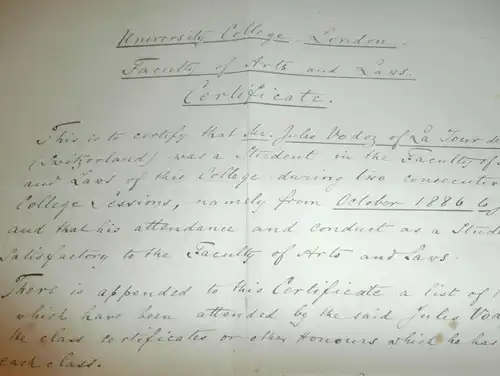 University College London.
Faculty of Arts and Laws.
Certificate.
This is to certify that Mr. Jules Vodoz of La Tour de
(Switzerland) was a Student in the Faculty of
and Laws of this College during two consecutive
College Sessions, namely from October 1886 to
and that his attendance and conduct as a Stude
satisfactory to the Faculty of Arts and Laws.
There is appended to this Certificate a list of
which have been attended by the said Jules Vod
the class certificates or other Honours which he has
each class.